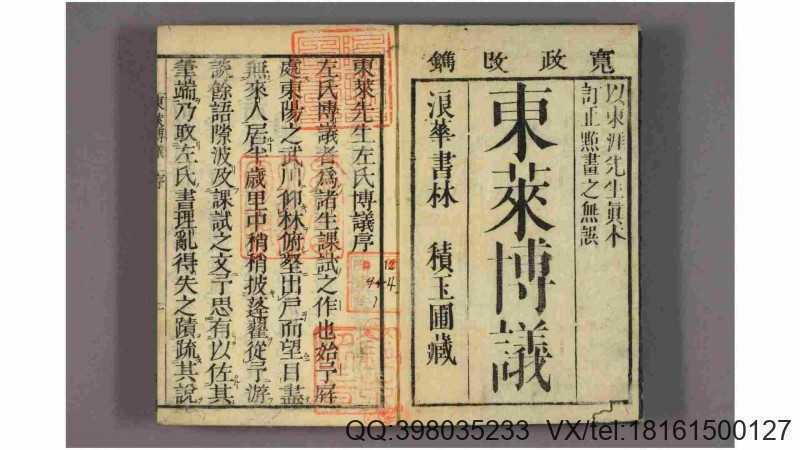 寛政改鐫
以東涯先生眞本
訂正點畫之無誤
東萊博議
浪華書林 積玉圃藏
東萊先生左氏博議序
左氏博議者為諸生課試之作也始予屏
處東陽之武川仰林俯壑出戶而望目盡
無來人居半歲里中稍稍披蓬藋從予游
談餘語隙波及課試之文予思有以佐其
筆端乃取左氏書理亂得失之蹟疏其說
12
4
QQ:398035233 VX/tel:18161500127